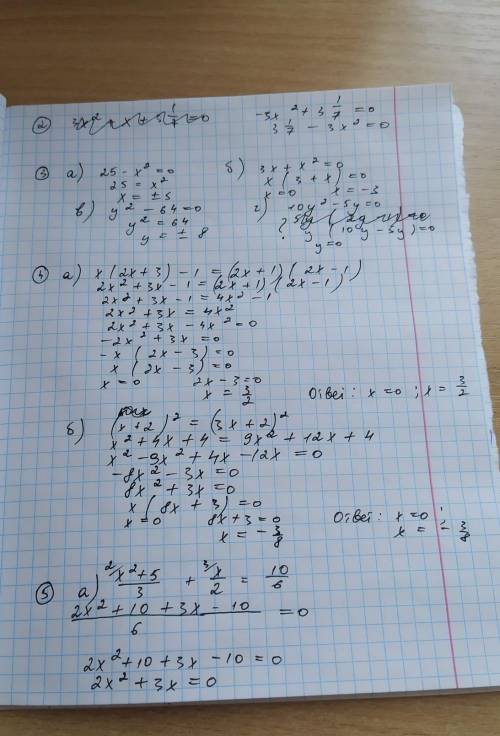 ② -3x² + 3 1/7 = 0
3 1/7 - 3x² = 0
③ а) 25 - x² = 0
25 = x²
x = ±5
б) 3x + x² = 0
x (3 + x) = 0
x = 0 x = -3
в) y² - 64 = 0
y² = 64
y = ± 8
г) 10y² - 5y = 0
? y (10y - 5y) = 0
y = 0
④ а) x (2x + 3) - 1 = (2x + 1) (2x - 1)
2x² + 3x - 1 = (2x + 1) (2x - 1)
2x² + 3x - 1 = 4x² - 1
2x² + 3x = 4x²
2x² + 3x - 4x² = 0
-2x² + 3x = 0
-x (2x - 3) = 0
x (2x - 3) = 0
x = 0 2x - 3 = 0
x = 3/2 Ответ: x = 0 ; x = 3/2
б) (x + 2)² = (3x + 2)²
x² + 4x + 4 = 9x² + 12x + 4
x² - 9x² + 4x - 12x = 0
-8x² - 3x = 0
8x² + 3x = 0
x (8x + 3) = 0
x = 0 8x + 3 = 0
x = - 3/8
Ответ: x = 0 ;
x = - 3/8
⑤ а) ²⁄ x² + 5 / 3 + ³⁄ x / 2 = 10 / 6
2x² + 10 + 3x - 10 / 6 = 0
2x² + 10 + 3x - 10 = 0
2x² + 3x = 0